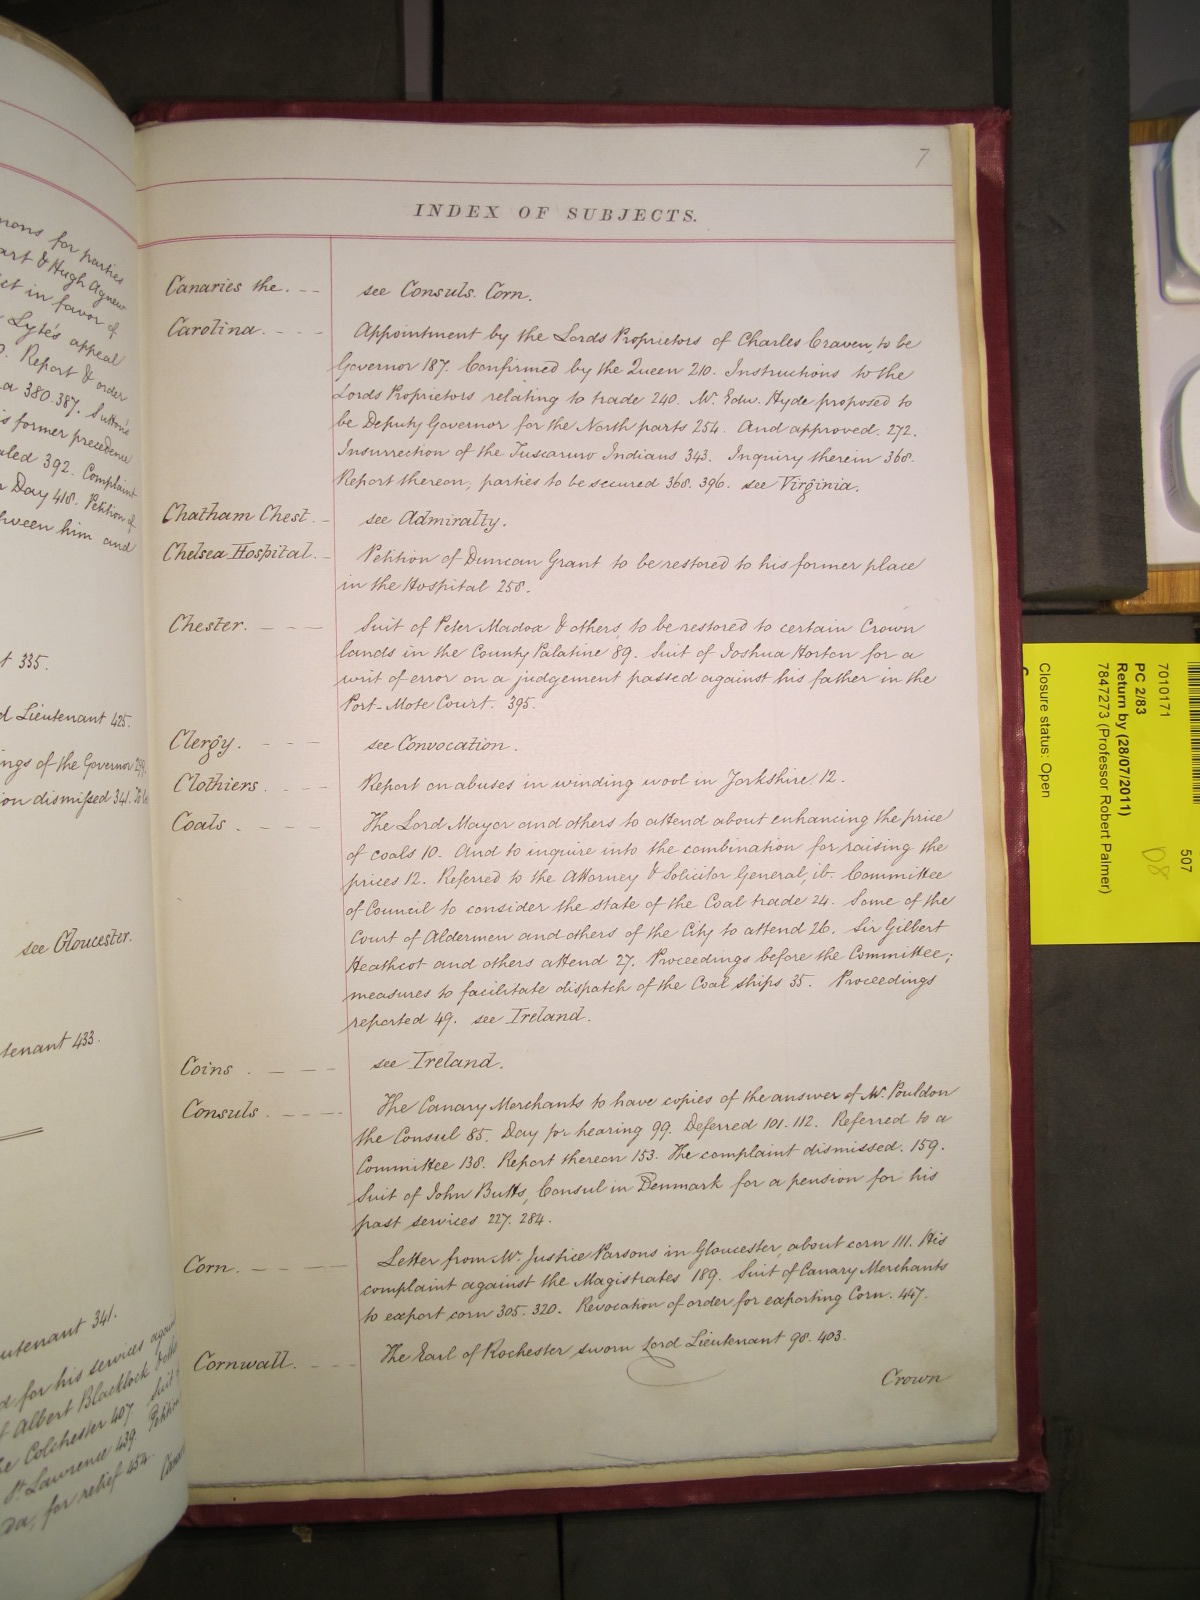 7
INDEX OF SUBJECTS.
Canaries the. -- see Consuls. Corn.
Carolina. --- Appointment by the Lords Proprietors of Charles Craven, to be
Governor 187. Confirmed by the Queen 210. Instructions to the
Lords Proprietors relating to trade 240. Mr. Edw. Hyde proposed to
be Deputy Governor for the North parts 254. And approved. 272.
Insurrection of the Tuscaruro Indians 343. Inquiry therein 368.
Report thereon, parties to be secured 368. 396. see Virginia.
Chatham Chest. - see Admiralty.
Chelsea Hospital. - Petition of Duncan Grant to be restored to his former place
in the Hospital 258.
Chester. --- Suit of Peter Madox & others, to be restored to certain Crown
lands in the County Palatine 89. Suit of Joshua Horton for a
writ of error on a judgement passed against his father in the
Port-Mote Court. 395.
Clergy. --- see Convocation.
Clothiers. --- Report on abuses in winding wool in Yorkshire 12.
Coals. --- The Lord Mayor and others to attend about enhancing the price
of coals 10. And to inquire into the combination for raising the
prices 12. Referred to the Attorney & Solicitor General, ib. Committee
of Council to consider the state of the Coal trade 24. Some of the
Court of Aldermen and others of the City to attend 26. Sir Gilbert
Heathcot and others attend 27. Proceedings before the Committee;
measures to facilitate dispatch of the Coal ships 35. Proceedings
reported 49. see Ireland.
Coins. --- see Ireland.
Consuls. --- The Canary Merchants to have copies of the answer of Mr. Pouldon
the Consul 85. Day for hearing 99. Deferred 101. 112. Referred to a
Committee 138. Report thereon 153. The complaint dismissed. 159.
Suit of John Butts, Consul in Denmark for a pension for his
past services 227. 284.
Corn. --- Letter from Mr. Justice Parsons in Gloucester, about corn 111. His
complaint against the Magistrates 189. Suit of Canary Merchants
to export corn 305. 320. Revocation of order for exporting Corn. 447.
Cornwall. --- The Earl of Rochester sworn Lord Lieutenant 98. 403.
Crown
for parties
& Hugh Agnew
in favor of
Lyte's appeal
Report & order
380. 387. Sutton's
former precedence
392. Complaint
Day 418. Petition of
him and
335.
Lieutenant 425.
of the Governor
dismissed 341.
see Gloucester.
433.
341.
for his services against
Albert Blacklock
Colchester 407. Suit
St. Lawrence 439. Petition
for relief 454.
7010171
507
PC 2/83
Return by (28/07/2011)
7847273 (Professor Robert Palmer)
D8
Closure status: Open